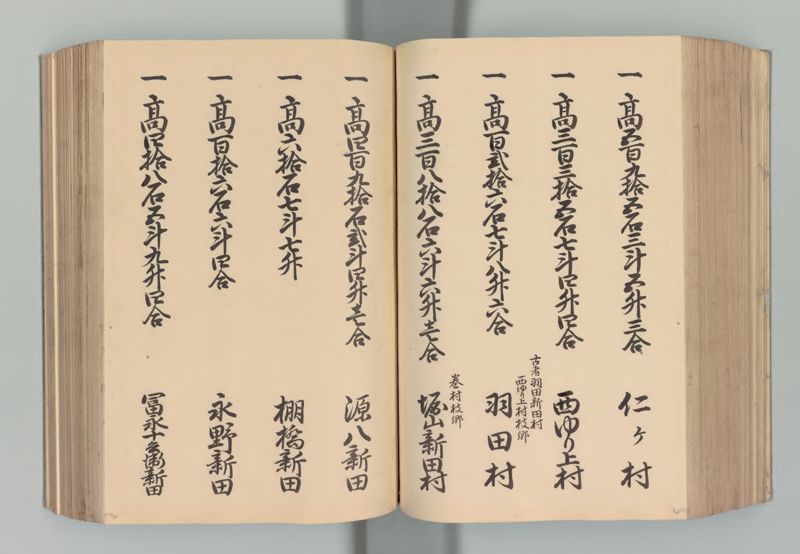 一 高五百九拾五石三斗五升三合 仁ヶ村
一 高三百三拾五石七斗四升四合 西ゆり上村
古者羽田新田村
西ゆり上村枝郷
一 高百弐拾六石七斗八升六合 羽田村
巻村枝郷
一 高三百八拾八石六斗六升壱合 堀山新田村
一 高四百九拾石弐斗四升壱合 源八新田
一 高六拾石七斗七升 棚橋新田
一 高百拾六石六斗四合 永野新田
一 高四拾八石五斗九升四合 冨永十兵衛新田